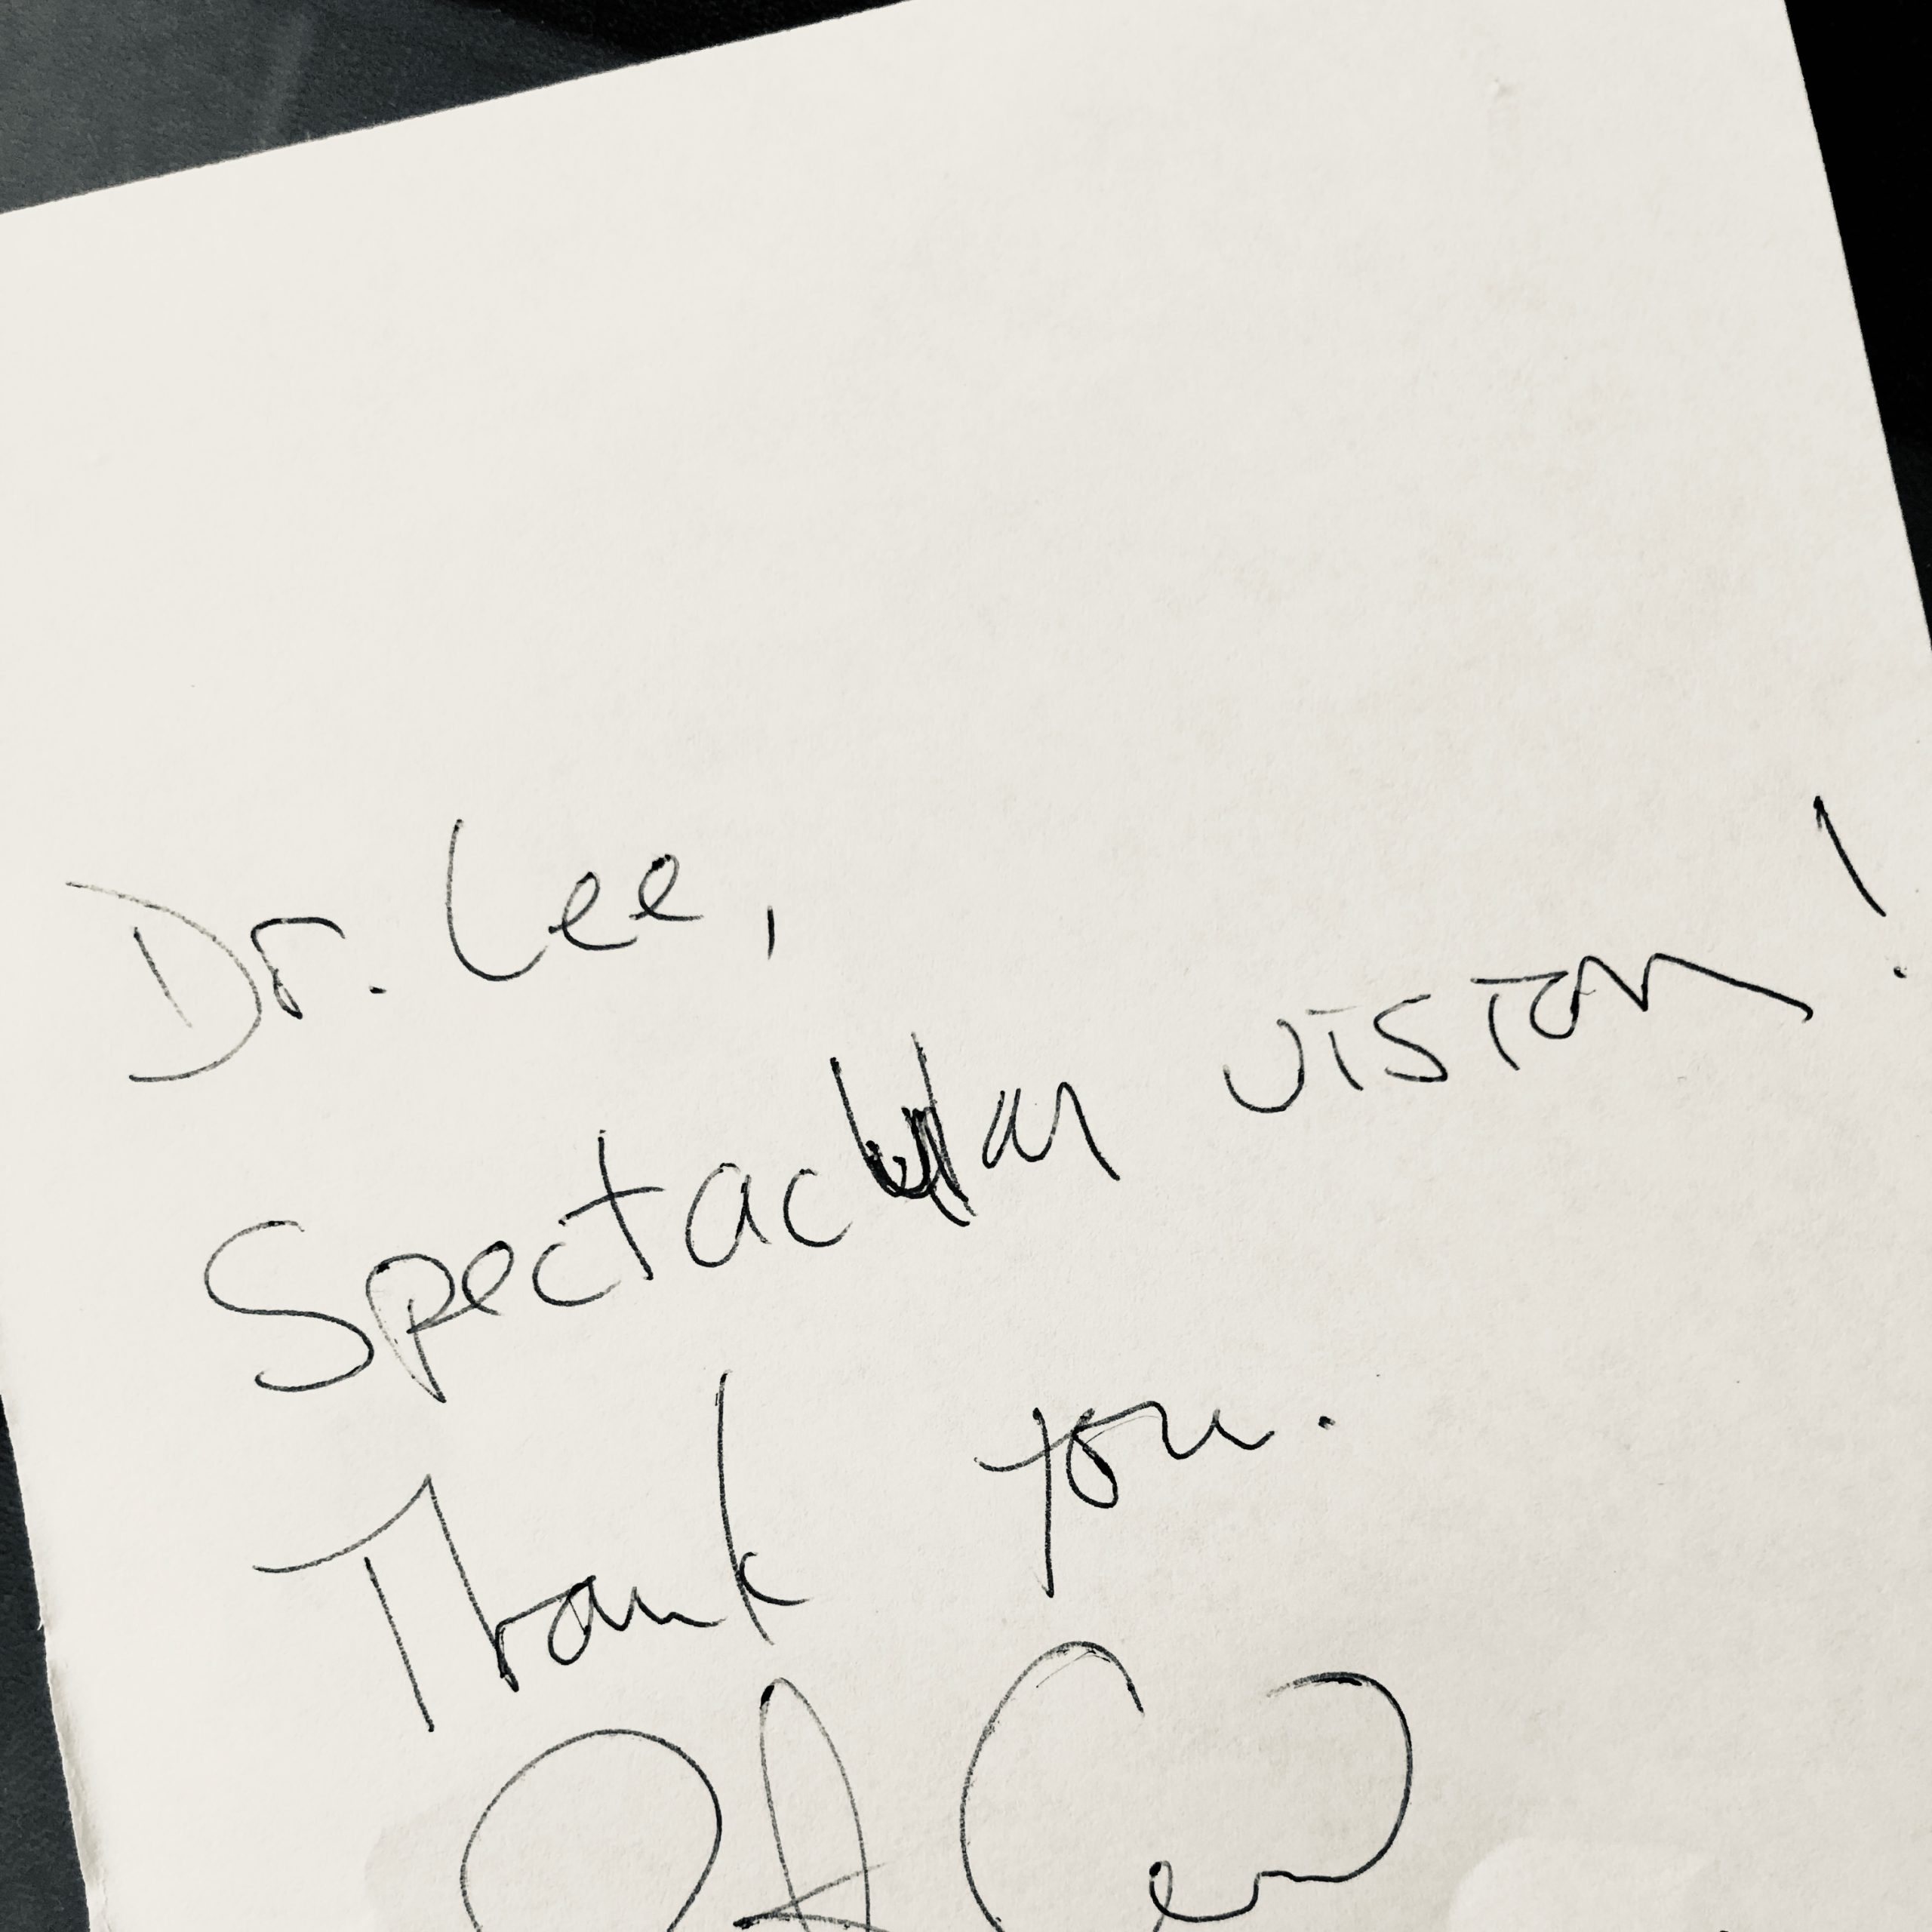 Dr. Lee,
Spectacular vision!
Thank you.